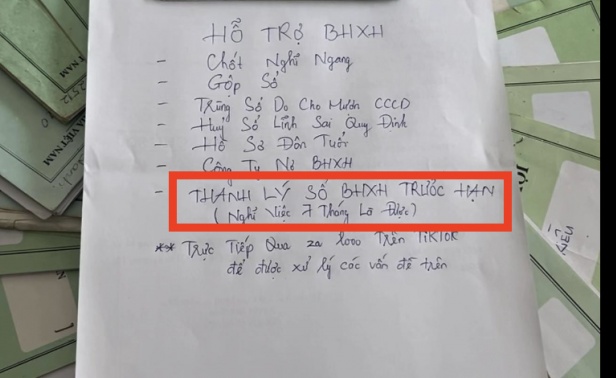 HỖ TRỢ BHXH
- Chốt Nghỉ Ngang
- Gộp Sổ
- Trùng Sổ Do Cho Mượn CCCD
- Huỷ Sổ Lĩnh Sai Quy Định
- Hồ Sơ Đôn Tuổi
- Công Ty Nợ BHXH
- THANH LÝ SỔ BHXH TRƯỚC HẠN
( Nghỉ Việc 7 Tháng Là Được )
** Trực Tiếp Qua za lo Trên TikTOK
để được xử lý các vấn đề trên
NAM
VIỆT NAM